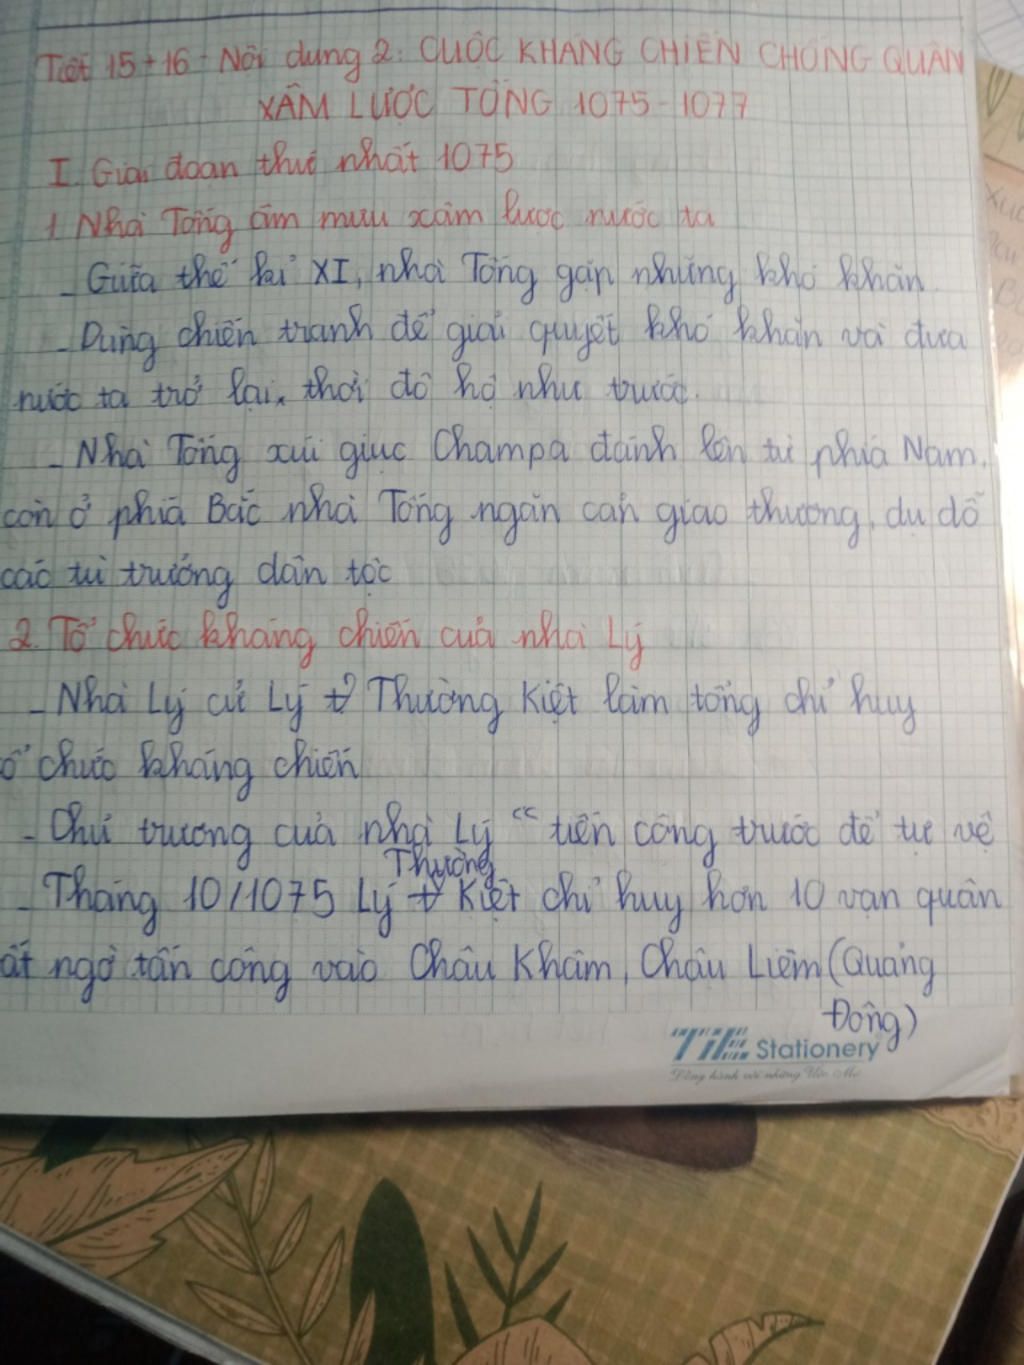 Tiết 15 + 16 - Nội dung 2: CUỘC KHÁNG CHIẾN CHỐNG QUÂN
XÂM LƯỢC TỐNG 1075 - 1077
I. Giai đoạn thứ nhất 1075
1. Nhà Tống âm mưu xâm lược nước ta
- Giữa thế kỉ XI, nhà Tống gặp những khó khăn.
- Dùng chiến tranh để giải quyết khó khăn và đưa
nước ta trở lại thời đô hộ như trước.
- Nhà Tống xúi giục Champa đánh lên từ phía Nam,
còn ở phía Bắc nhà Tống ngăn cản giao thương, dụ dỗ
các tù trưởng dân tộc
2. Tổ chức kháng chiến của nhà Lý
- Nhà Lý cử Lý Thường Kiệt làm tổng chỉ huy
ổ chức kháng chiến
- Chủ trương của nhà Lý "tiến công trước để tự vệ
- Tháng 10/1075 Lý Thường Kiệt chỉ huy hơn 10 vạn quân
ất ngờ tấn công vào Châu Khâm, Châu Liêm (Quảng
Đông)
TiE Stationery
Đồng hành với những Ước Mơ